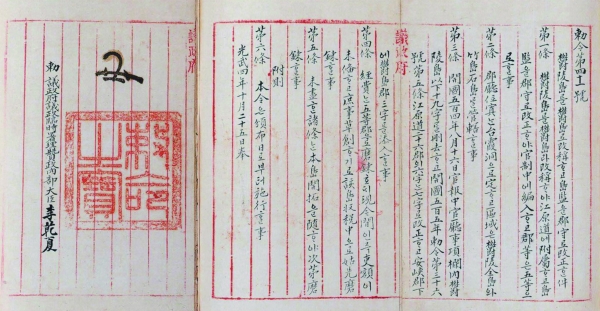 勅令第四十一號
鬱陵島를鬱島로改稱ᄒᆞ고島監을郡守로改正ᄒᆞᆫ件
第一條 鬱陵島를鬱島라改稱ᄒᆞ야江原道에附屬ᄒᆞ고島
監을郡守로改正ᄒᆞ야官制中에編入ᄒᆞ고郡等은五等으
로ᄒᆞᆯ事
第二條 郡廳位寘ᄂᆞᆫ台霞洞으로定ᄒᆞ고區域은鬱陵全島와
竹島石島를管轄ᄒᆞᆯ事
第三條 開國五百四年八月十六日官報中官廳事項欄內鬱
陵島以下十九字를刪去ᄒᆞ고開國五百五年勅令第三十六
號第五條江原道二十六郡의六字ᄂᆞᆫ七字로改正ᄒᆞ고安峽郡下
議政府
에鬱島郡三字를添入ᄒᆞᆯ事
第四條 經費ᄂᆞᆫ五等郡으로磨鍊호ᄃᆡ現今間인즉吏額이
未備ᄒᆞ고庶事草創ᄒᆞ기로該島收稅中으로姑先磨
鍊ᄒᆞᆯ事
第五條 未盡ᄒᆞᆫ諸條ᄂᆞᆫ本島開拓을隨ᄒᆞ야次第磨
鍊ᄒᆞᆯ事
附則
第六條 本令은頒布日로부터施行ᄒᆞᆯ事
光武四年十月二十五日奉
議政府
勅命之寶
勅 議政府議政臨時署理贊政內部大臣李乾夏